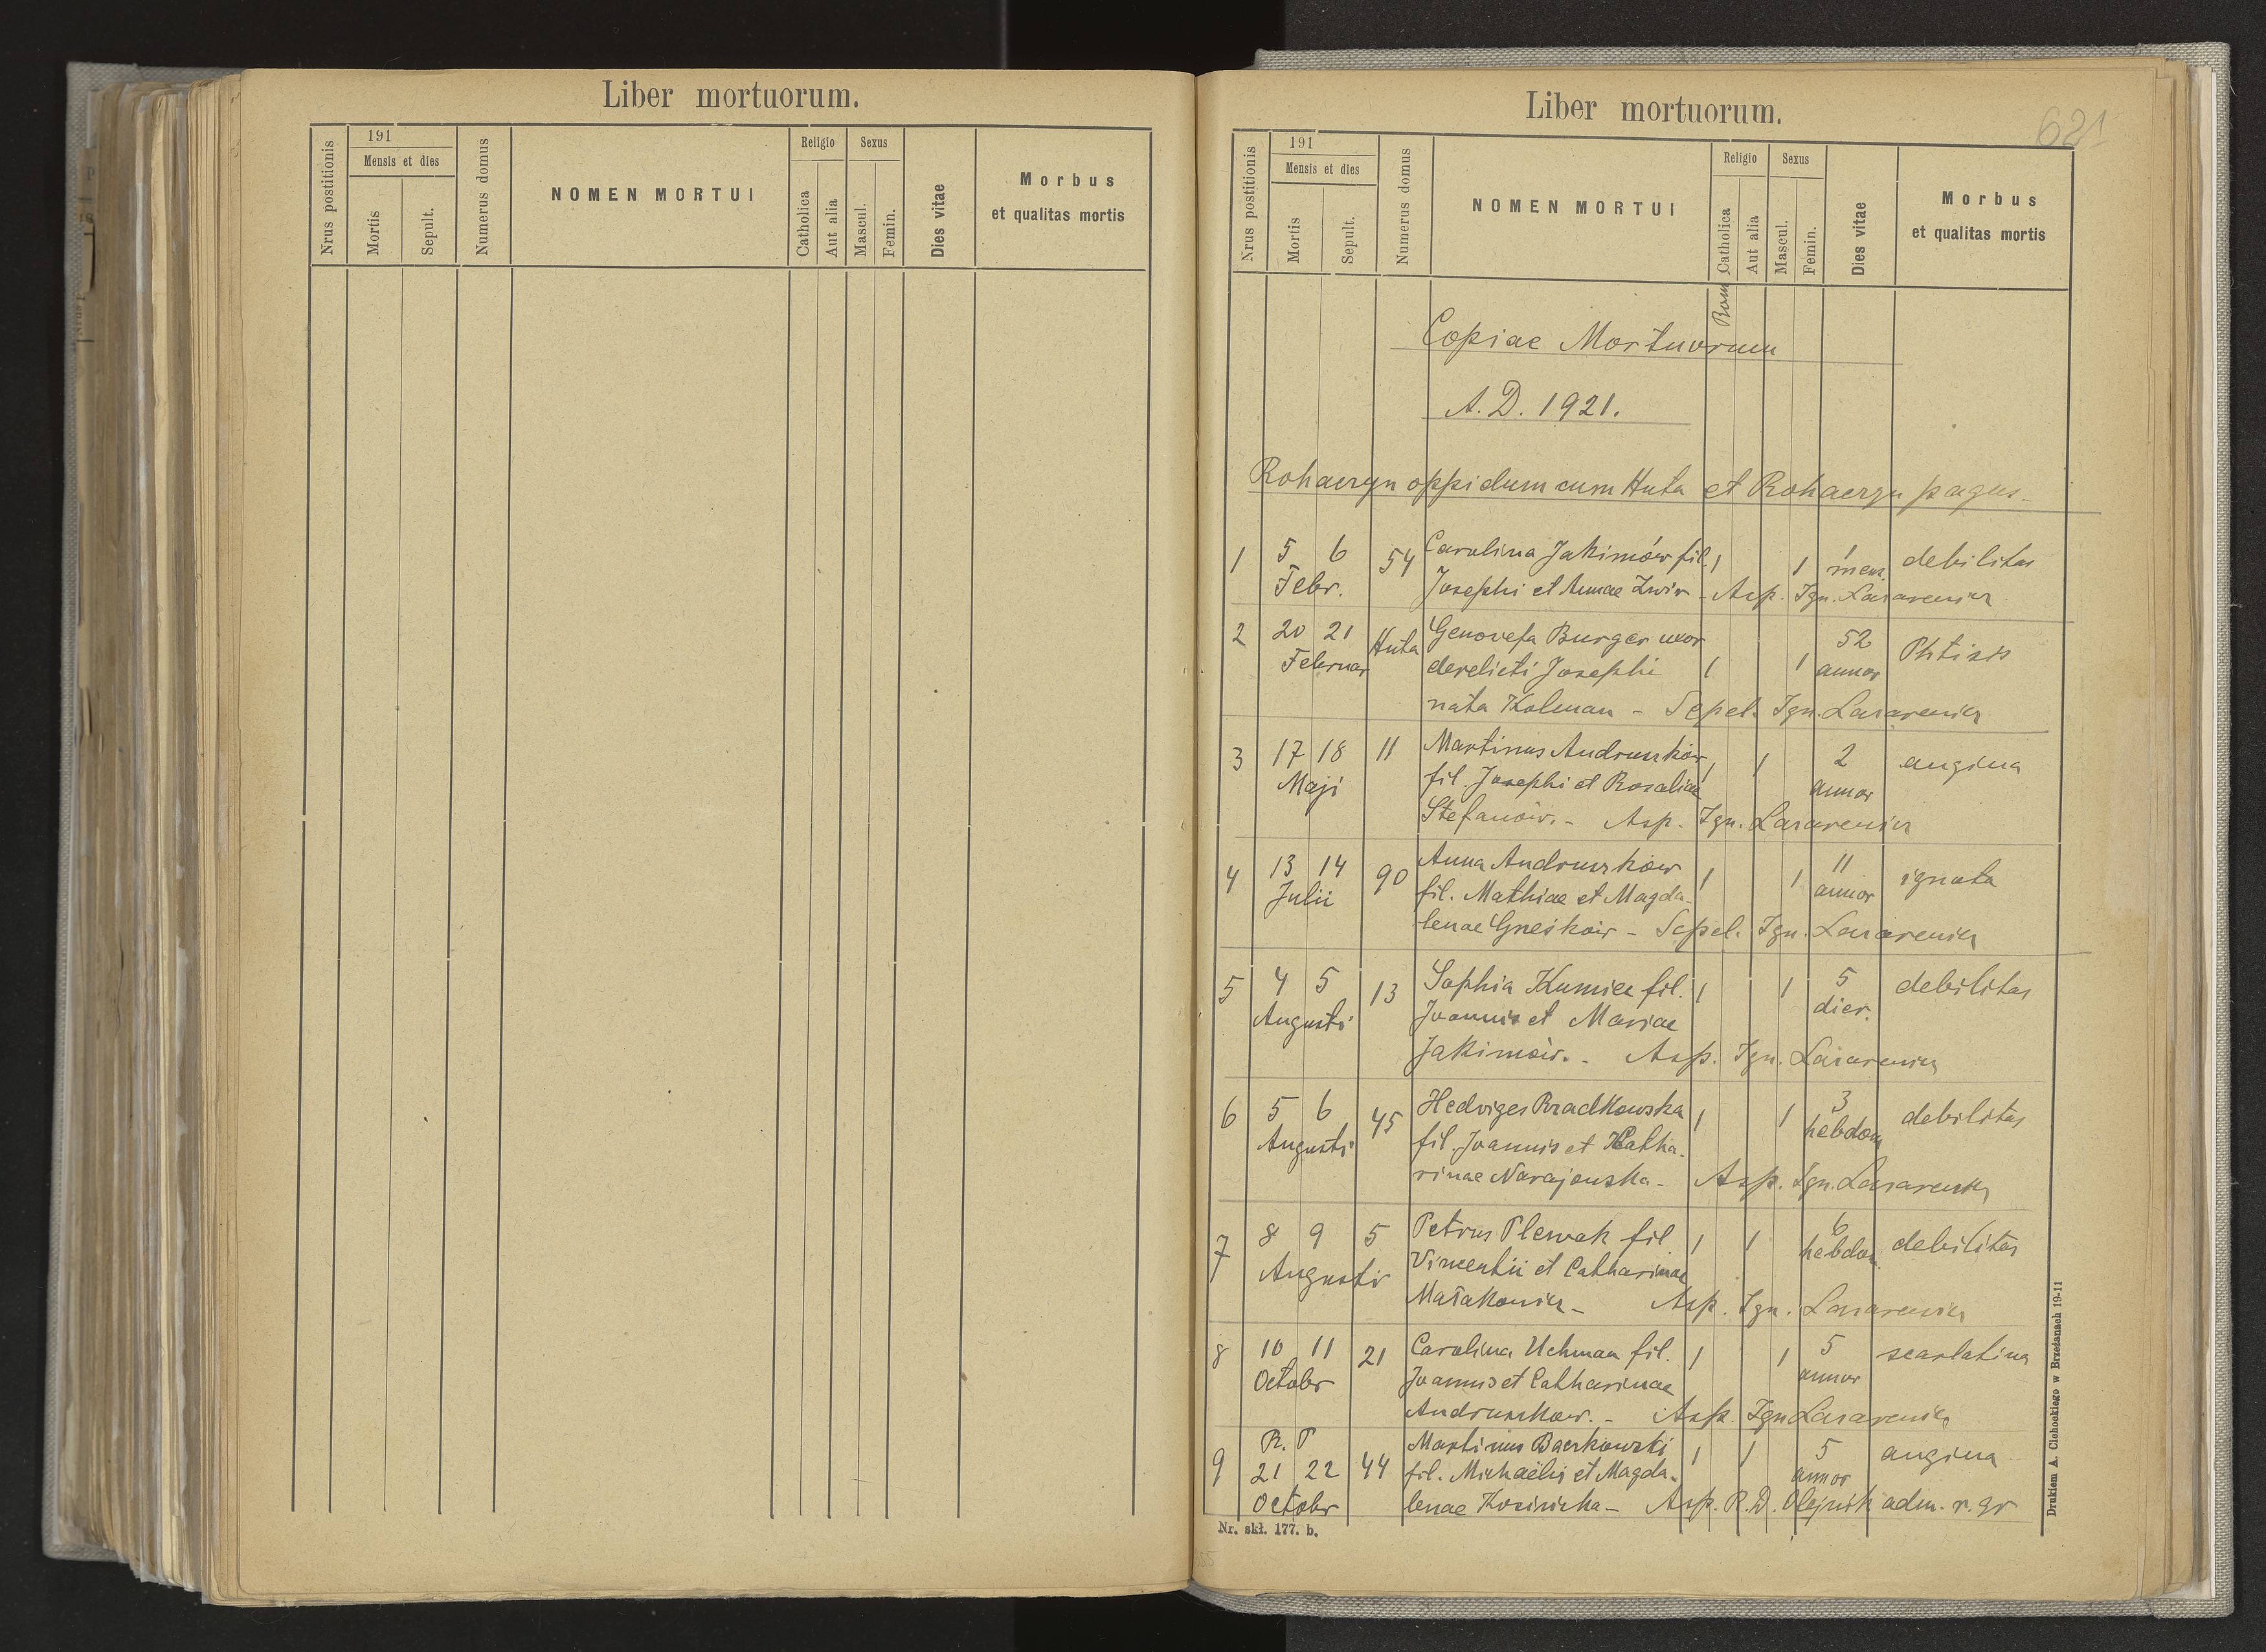 Liber mortuorum.
Nrus postitionis
191
Mensis et dies
Mortis
Sepult.
Numerus domus
NOMEN MORTUI
Religio
Catholica
Aut alia
Sexus
Mascul.
Femin.
Dies vitae
Morbus
et qualitas mortis
Liber mortuorum.
621
Nrus postitionis
191
Mensis et dies
Mortis
Sepult.
Numerus domus
NOMEN MORTUI
Religio
Rom Catholica
Aut alia
Sexus
Mascul.
Femin.
Dies vitae
Morbus
et qualitas mortis
Copiae Mortuorum
A. D. 1921.
Rohaczyn oppidum cum Huta et Rohaczyn pagus
1 5 6 54 Carolina Jakimów fil. 1 1 1 debilitas
Febr. Josephi et Annae Zwir - Asp. Ign. Lazarewicz
mens.
2 20 21 Huta Genovefa Burger uxor 52
Februar derelicti Josephi 1 1 annor Phtisis
nata Kolman - Sepel. Ign. Lazarewicz
3 17 18 11 Martinus Andruszków 1 1 2 angina
Maji fil. Josephi et Rosaliae annor
Stefanów. - Asp. Ign. Lazarewicz
4 13 14 90 Anna Andruszków 1 1 11 ignota
Julii fil. Mathiae et Magda- annor
lenae Gneśków - Sepel. Ign. Lazarewicz
5 4 5 13 Sophia Kumiec fil. 1 1 5 debilitas
Augusti Joannis et Mariae dier.
Jakimów. - Asp. Ign. Lazarewicz
6 5 6 45 Hedviges Bradkowska 1 1 3 debilitas
Augusti fil. Joannis et Catha- hebdom
rinae Narajowska - Asp. Ign. Lazarewicz
7 8 9 5 Petrus Plewak fil. 1 1 6 debilitas
Augusti Vincentii et Catharinae hebdom.
Asp. Ign. Lazarewicz
8 10 11 21 Carolina Uchman fil. 1 1 5 scarlatina
Octobr Joannis et Catharinae annor
Andruszków. - Asp. Ign Lazarewicz
R. P
9 21 22 44 Martinus Baczkowski 1 1 5 angina
Octobr fil. Michaëlis et Magda- annor
lenae - Asp. R. D. Olejnik adm. r. gr
Nr. skł. 177. b.
Drukiem A. Cichockiego w Brzeżanach 19-11